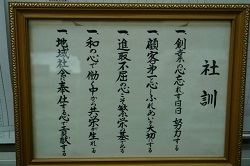 社訓
一、創業の心忘れず日日努力する
一、顧客第一心ふれあい大切にする
一、進取不屈の心こそ繁栄の基である
一、和の心で働く中から共栄が生れる
一、地域社会に奉仕する心で貢献する